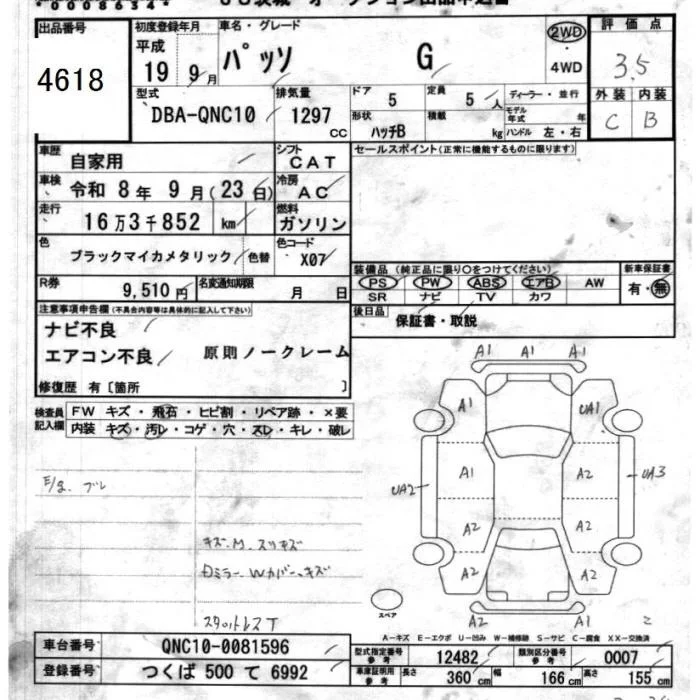 00086344
出品番号
4618
初度登録年月
平成
19 9月
車名・グレード
パッソ G
2WD
4WD
評価点
3.5
外装 内装
C B
型式
DBA-QNC10
排気量
1297
CC
ドア
5
定員
5 人
形状
ハッチB
積載
kg
ディーラー・並行
モデル年式 年
ハンドル 左・右
車歴
自家用
シフト
CAT
車検
令和 8年 9月(23日)
冷房
AC
走行
16万3千852 km
燃料
ガソリン
色
ブラックマイカメタリック
色替
色コード
X07
R券
9,510円
名変通知期限
月 日
セールスポイント(正常に機能するものに限ります)
装備品 (純正品に限り○をつけてください)
PS PW ABS エアB AW
SR ナビ TV カワ
新車保証書
有・無
後日品
保証書・取説
注意事項申告欄(不具合内容等は具体的に記入して下さい)
ナビ不良
エアコン不良
原則ノークレーム
修復歴 有〔箇所 〕
検査員記入欄
FW キズ・飛石・ヒビ割・リペア跡・×要
内装 キズ・汚レ・コゲ・穴・スレ・キレ・破レ
キズ・M.スリキズ
Dミラー Wカバー、キズ
スタットレスT
A1 A1 A1
A1 UA1
A1 A2
UA2 UA3
A2 A2
A2 A2
A2 A1
スペア
A-キズ E-エクボ U-凹み W-補修跡 S-サビ C-腐食 XX-交換済
車台番号
QNC10-0081596
登録番号
つくば 500 て 6992
型式指定番号
参考
12482
類別区分番号
参考
0007
車庫証明用
参考
長さ
360 cm
幅
166 cm
高さ
155 cm